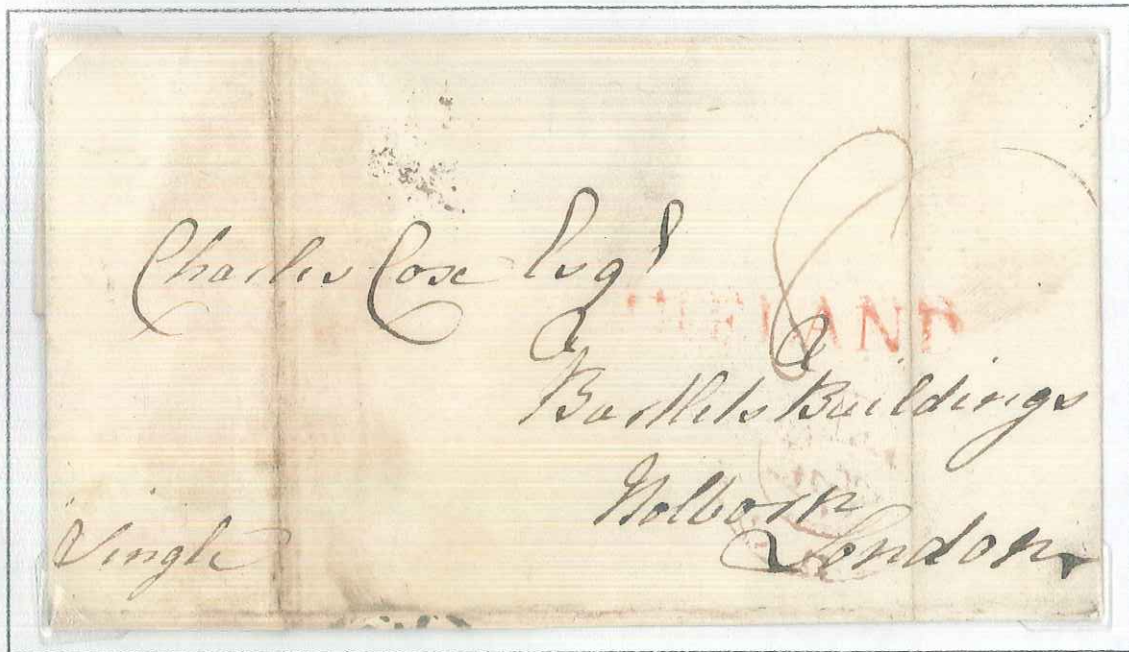 Charles Cox Esqr
Bartlets Buildings
Holborn
London
Single
8